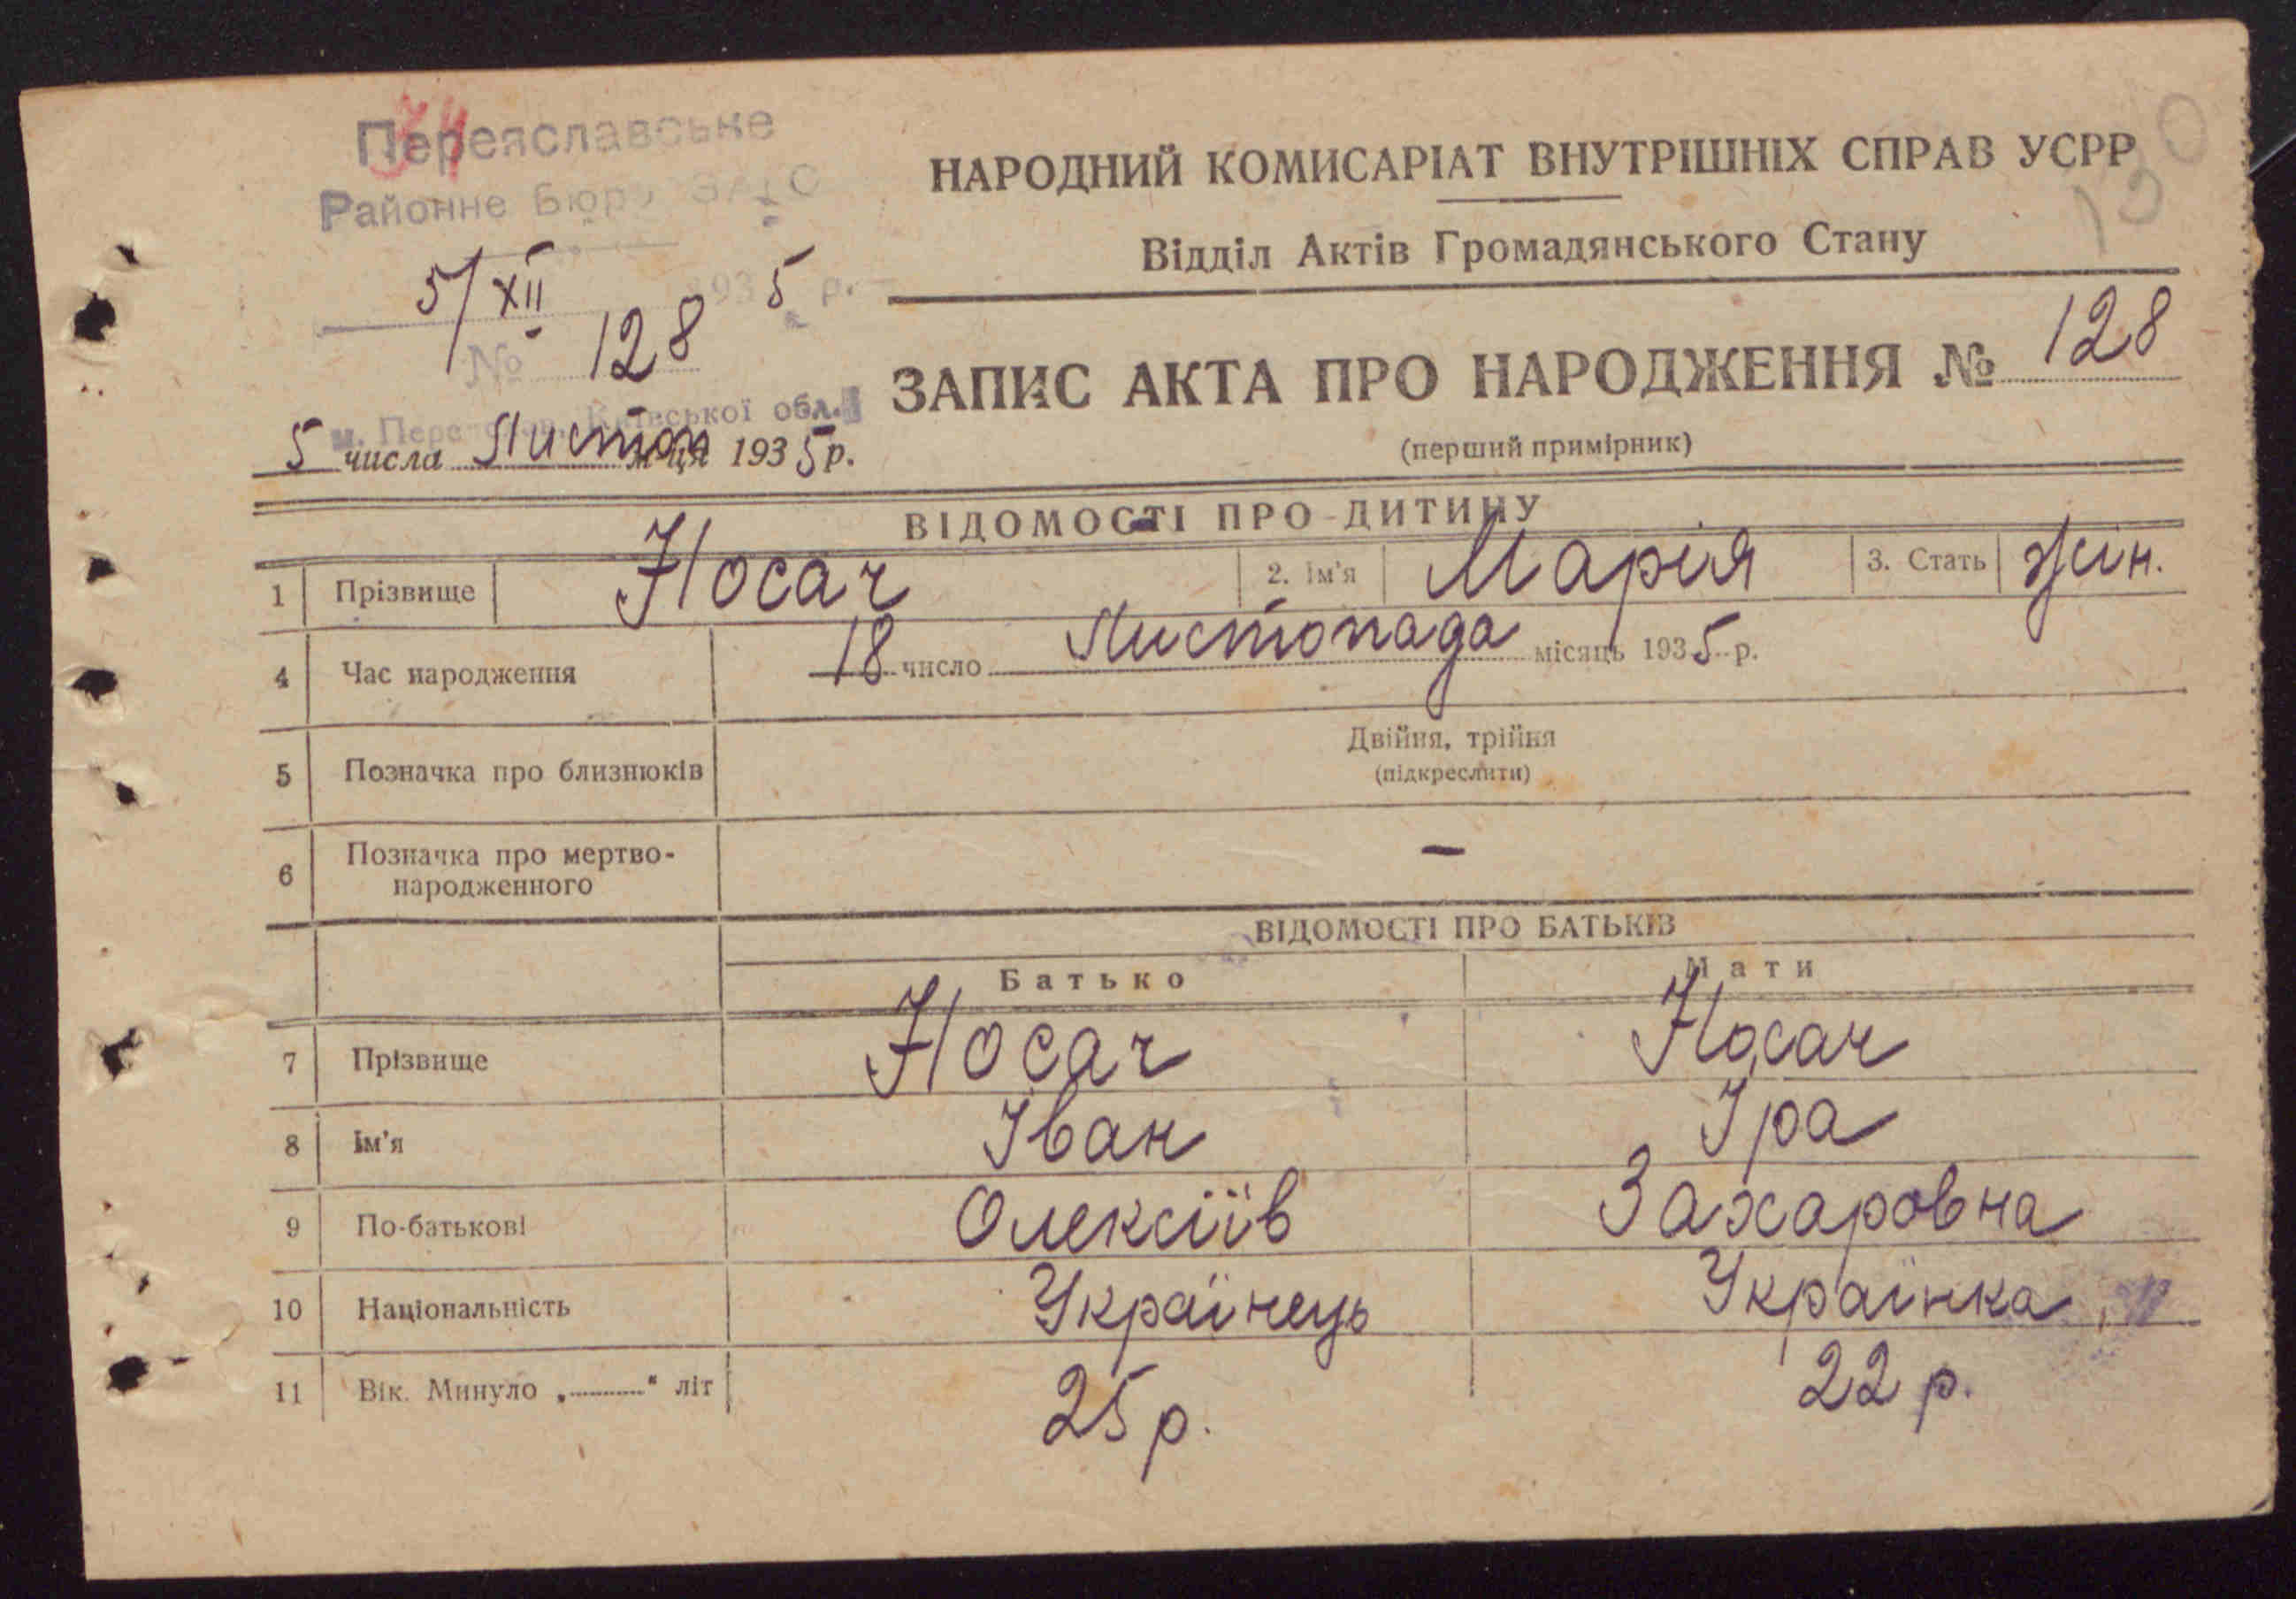 Переяславське
Районне Бюро ЗАГС
5/XII 1935 р.
№ 128
м. Переяслав, Київської обл.
5 числа Листоп м-ця 1935 р.
НАРОДНИЙ КОМИСАРІАТ ВНУТРІШНІХ СПРАВ УСРР
Відділ Актів Громадянського Стану
ЗАПИС АКТА ПРО НАРОДЖЕННЯ № 128
(перший примірник)
ВІДОМОСТІ ПРО ДИТИНУ
1 Прізвище Носач 2. Ім'я Марія 3. Стать жін.
4 Час народження 18 число Листопада місяць 1935 р.
5 Позначка про близнюків Двійня, трійня
(підкреслити)
6 Позначка про мертво-
народженного –
ВІДОМОСТІ ПРО БАТЬКІВ
Батько Мати
7 Прізвище Носач Носач
8 Ім'я Іван Іра
9 По-батькові Олексіїв Захаровна
10 Національність Українець Українка
11 Вік. Минуло „ “ літ 25 р. 22 р.